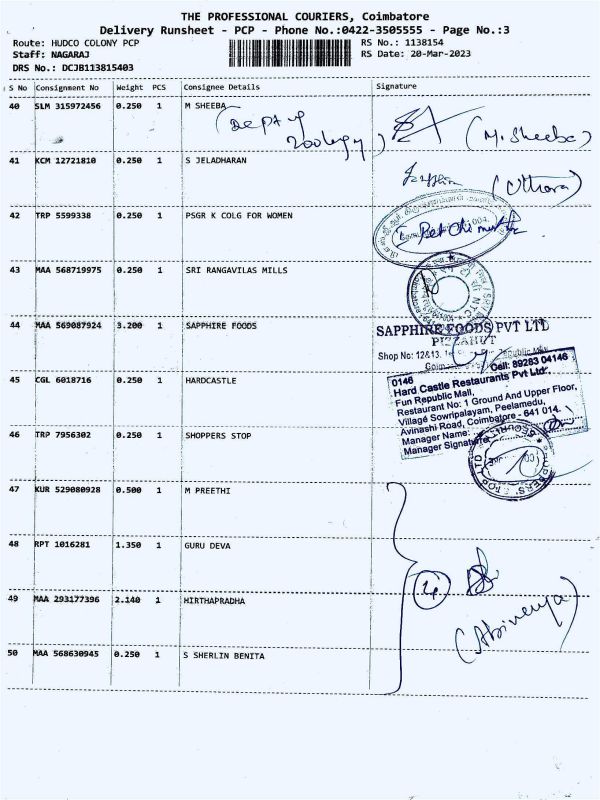 THE PROFESSIONAL COURIERS, Coimbatore
Delivery Runsheet - PCP - Phone No.:0422-3505555 - Page No.:3
Route: HUDCO COLONY PCP RS No.: 1138154
Staff: NAGARAJ RS Date: 20-Mar-2023
DRS No.: DCJB113815403
S No Consignment No Weight PCS Consignee Details Signature
40 SLM 315972456 0.250 1 M SHEEBA
(Dept of Zoology) (M. Sheeba)
41 KCM 12721810 0.250 1 S JELADHARAN
(Uthara)
42 TRP 5599338 0.250 1 PSGR K COLG FOR WOMEN
43 MAA 568719975 0.250 1 SRI RANGAVILAS MILLS
44 MAA 569087924 3.200 1 SAPPHIRE FOODS
SAPPHIRE FOODS PVT LTD
PIZZAHUT
Shop No: 12&13. Republic Mall
45 CGL 6018716 0.250 1 HARDCASTLE
0146 Cell: 89283 04146
Hard Castle Restaurants Pvt Ltd.
Fun Republic Mall,
Restaurant No: 1 Ground And Upper Floor,
Village Sowripalayam, Peelamedu,
Avinashi Road, Coimbatore - 641 014.
Manager Name:
Manager Signature
46 TRP 7956302 0.250 1 SHOPPERS STOP
47 KUR 529080928 0.500 1 M PREETHI
48 RPT 1016281 1.350 1 GURU DEVA
49 MAA 293177396 2.140 1 HIRTHAPRADHA
50 MAA 568630945 0.250 1 S SHERLIN BENITA